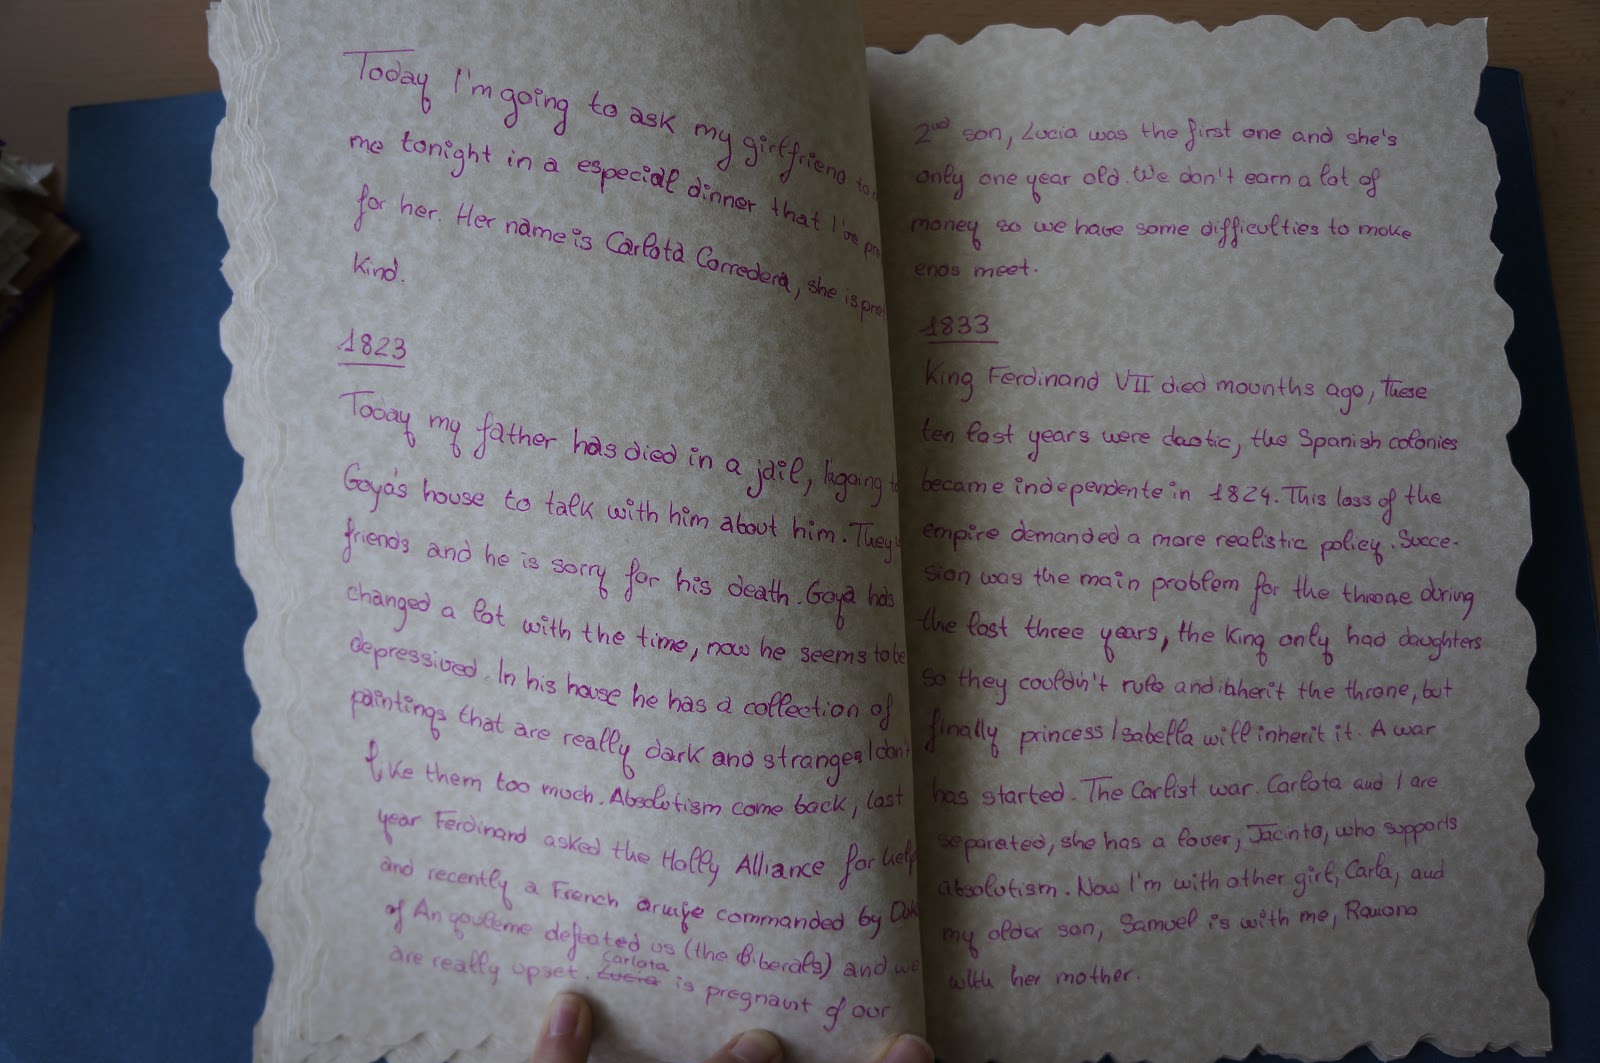 Today I'm going to ask my girlfriend to
me tonight in a especial dinner that I've
for her. Her name is Carlota Corredera, she is
kind.
1823
Today my father has died in a jail, I'agoing
Goya's house to talk with him about him. They
friends and he is sorry for his death. Goya has
changed a lot with the time, now he seems to be
depressived. In his house he has a collection of
paintings that are really dark and stranges I don't
like them too much. Absolutism come back, last
year Ferdinand asked the Holly Alliance for help
and recently a French armye commanded by
of Angouleme defeated us (the liberals) and we
are really upset. Lucia Carlota is pregnant of our
2nd son, Lucia was the first one and she's
only one year old. We don't earn a lot of
money so we have some difficulties to make
ends meet.
1833
King Ferdinand VII died mounths ago, these
ten last years were caotic, the Spanish colonies
became independente in 1824. This loss of the
empire demanded a more realistic policy. Succe-
sion was the main problem for the throne during
the last three years, the King only had daughters
so they couldn't rule and inherit the throne, but
finally princess Isabella will inherit it. A war
has started. The Carlist war. Carlota and I are
separated, she has a lover, Jacinto, who supports
absolutism. Now I'm with other girl, Carla, and
my older son, Samuel is with me, Ramona
with her mother.